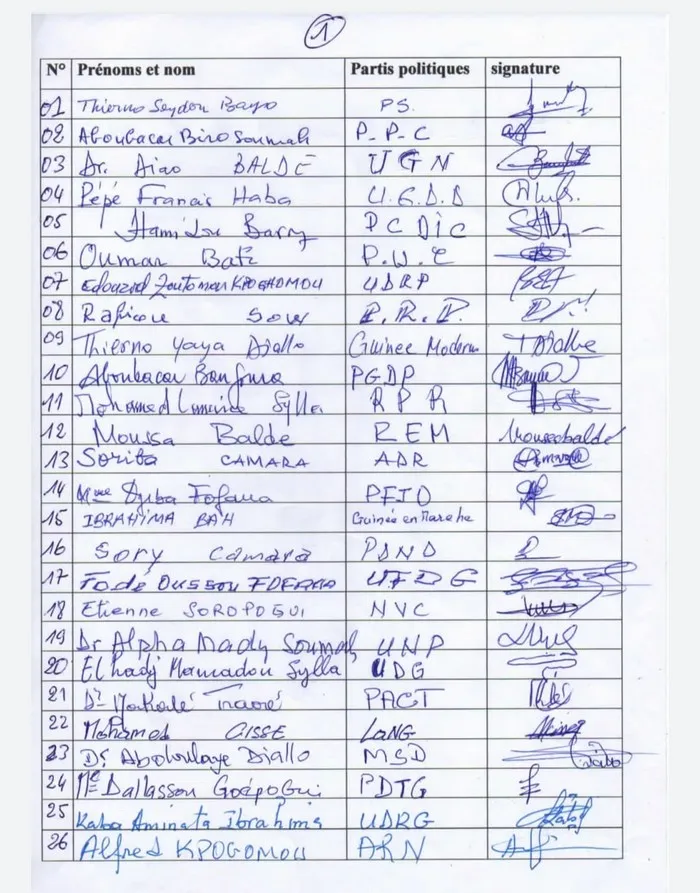 1
N° Prénoms et nom Partis politiques signature
01 Thierno Seydou Bayo PS.
02 Aboubacar Biro Soumah P-P-C
03 Dr. Aiao BALDE UGN
04 Pépé Francis Haba U.G.D.D
05 Hamidou Barry PCDIC
06 Oumar P.U.
07 Edouard Zoutomou KPOGHOMOU UDRP
08 Rafiou Sow P.R.P.
09 Thierno Yaya Diallo Guinée Moderne TDiallo
10 Aboubacar Bangoura PGDP
11 Mohamed Lamine Sylla RPR
12 Moussa Balde REM Moussabaldé
13 Soriba CAMARA ADR
14 Mme Fofana
15 IBRAHIMA BAH Guinée en Marche
16 Sory Camara
17 Fodé OUSSOU FOFANA UFDG
18 Etienne SOROPOGUI NVC
19 Dr Alpha Mady Soumah UNP
20 El hadj Mamadou Sylla UDG
21 Dr Makalé Traoré PACT
22 Mohamed CISSE LaNG
23 Dr Abdoulaye Diallo MSD
24 Me Goépogui PDTG
25 Kaba Aminata Ibrahima UDRG
26 Alfred KPOGOMOU ARN